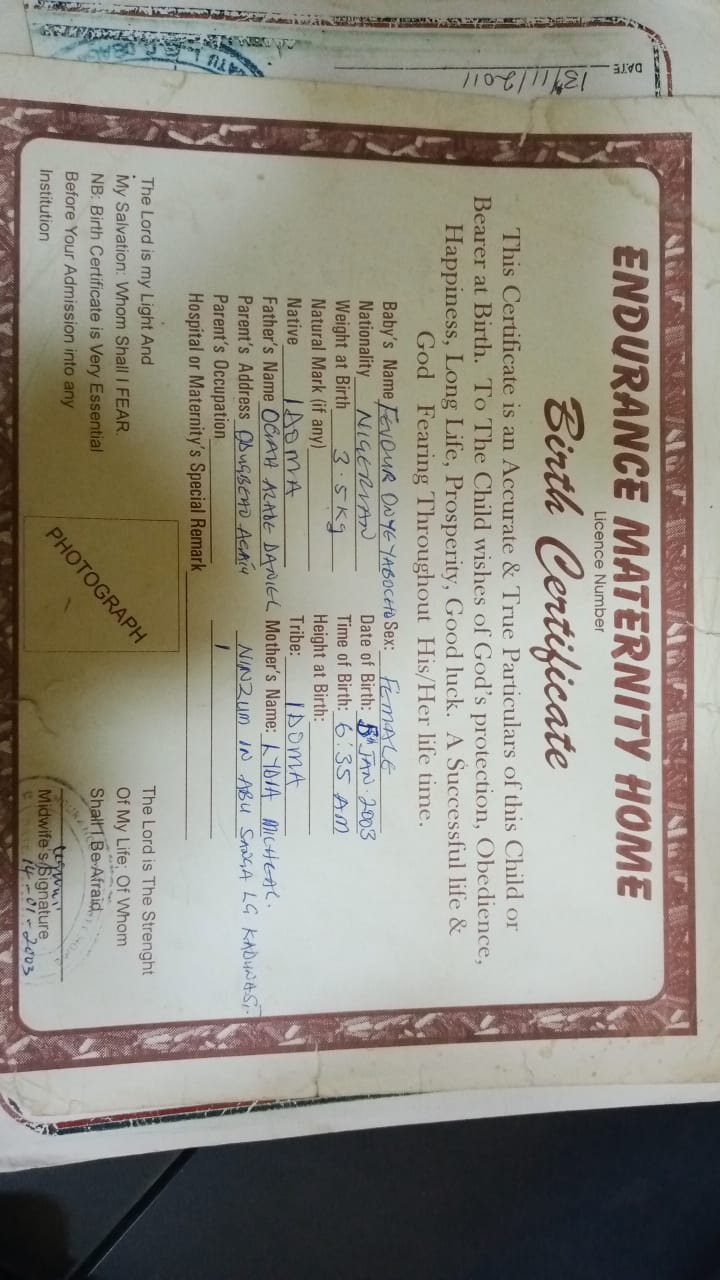 DATE 13/11/2011
ENDURANCE MATERNITY HOME
Licence Number
Birth Certificate
This Certificate is an Accurate & True Particulars of this Child or
Bearer at Birth. To The Child wishes of God's protection, Obedience,
Happiness, Long Life, Prosperity, Good luck. A Successful life &
God Fearing Throughout His/Her life time.
Baby's Name ONYEYABOCHO Sex: FEMALE
Nationality NIGERIAN Date of Birth: JAN. 2003
Weight at Birth 3.5Kg Time of Birth: 6:35 AM
Natural Mark (if any) Height at Birth:
Native IDOMA Tribe: IDOMA
Father's Name OGAH DANIEL Mother's Name: LYDIA MICHEAL.
Parent's Address NINZUM IN SANGA LG KADUNA ST.
Parent's Occupation
Hospital or Maternity's Special Remark
The Lord is my Light And
My Salvation: Whom Shall I FEAR.
NB: Birth Certificate is Very Essential
Before Your Admission into any
Institution
PHOTOGRAPH
The Lord is The Strenght
Of My Life: Of Whom
Shall I Be Afraid
Midwife's Signature
14-01-2003